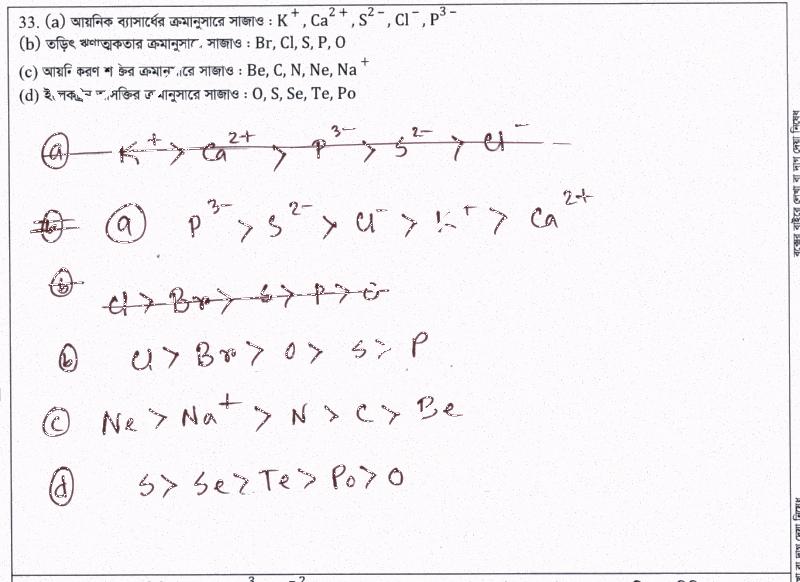 33. (a) আয়নিক ব্যাসার্ধের ক্রমানুসারে সাজাও : K⁺, Ca²⁺, S²⁻, Cl⁻, P³⁻
(b) তড়িৎ ঋণাত্মকতার ক্রমানুসারে সাজাও : Br, Cl, S, P, O
(c) আয়নিকরণ শক্তির ক্রমানুসারে সাজাও : Be, C, N, Ne, Na⁺
(d) আসক্তির ক্রমানুসারে সাজাও : O, S, Se, Te, Po
(a) K⁺ > Ca²⁺ > P³⁻ > S²⁻ > Cl⁻
(a) P³⁻ > S²⁻ > Cl⁻ > K⁺ > Ca²⁺
(b) Cl > Br > S > P > O
(b) Cl > Br > O > S > P
(c) Ne > Na⁺ > N > C > Be
(d) S > Se > Te > Po > O
বক্সের বাইরে লেখা বা দাগ দেয়া নিষেধ